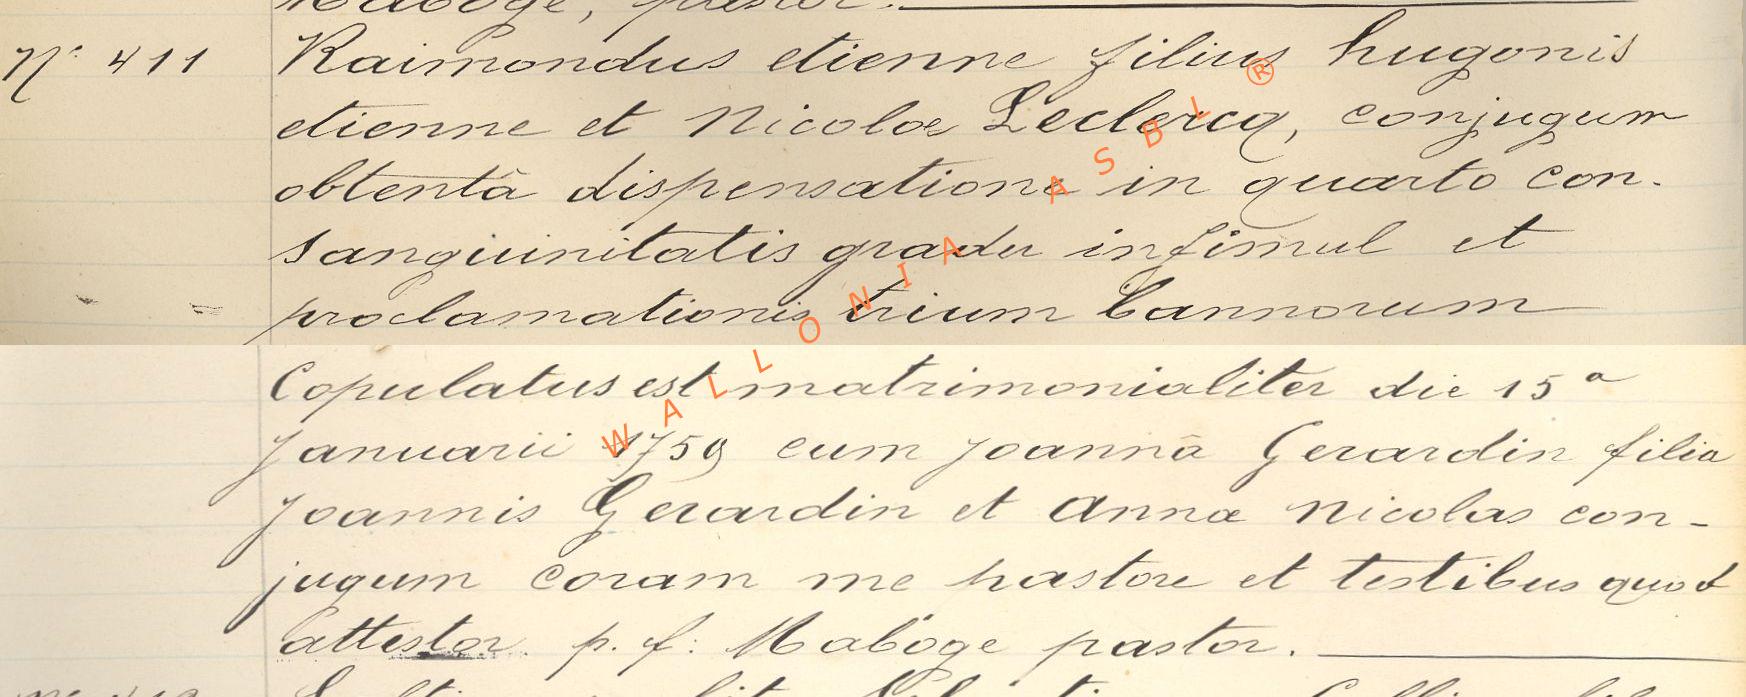 Maboge, pastor.
N° 411 Raimondus etienne filius hugonis
etienne et Nicolæ Leclercq, conjugum
obtentâ dispensatione in quarto con-
sanguinitatis gradu insimul et
proclamationis trium bannorum
Copulatus est matrimonialiter die 15ª
Januarii 1759 cum Joannâ Gerardin filia
Joannis Gerardin et Annæ Nicolas con-
jugum coram me pastore et testibus quod
attestor p. f: Maboge pastor.
WALLONIA ASBL ®